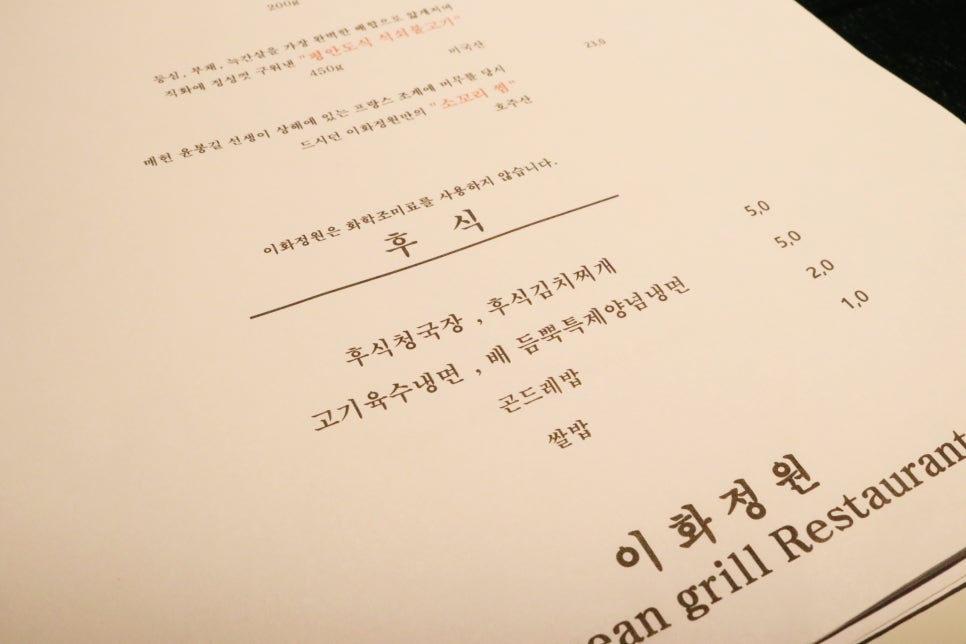 200g
등심, 부채, 늑간살을 가장 완벽한 배합으로 얇게저며
직화에 정성껏 구워낸 "평안도식 석쇠불고기"
450g 미국산 23,0
매헌 윤봉길 선생이 상해에 있는 프랑스 조계에 머무를 당시
드시던 이화정원만의 "소꼬리 찜"
호주산
이화정원은 화학조미료를 사용하지 않습니다.
후 식
후식청국장 , 후식김치찌개 5,0
고기육수냉면 , 배 듬뿍특제양념냉면 5,0
곤드레밥 2,0
쌀밥 1,0
이화정원
ean grill Restaurant